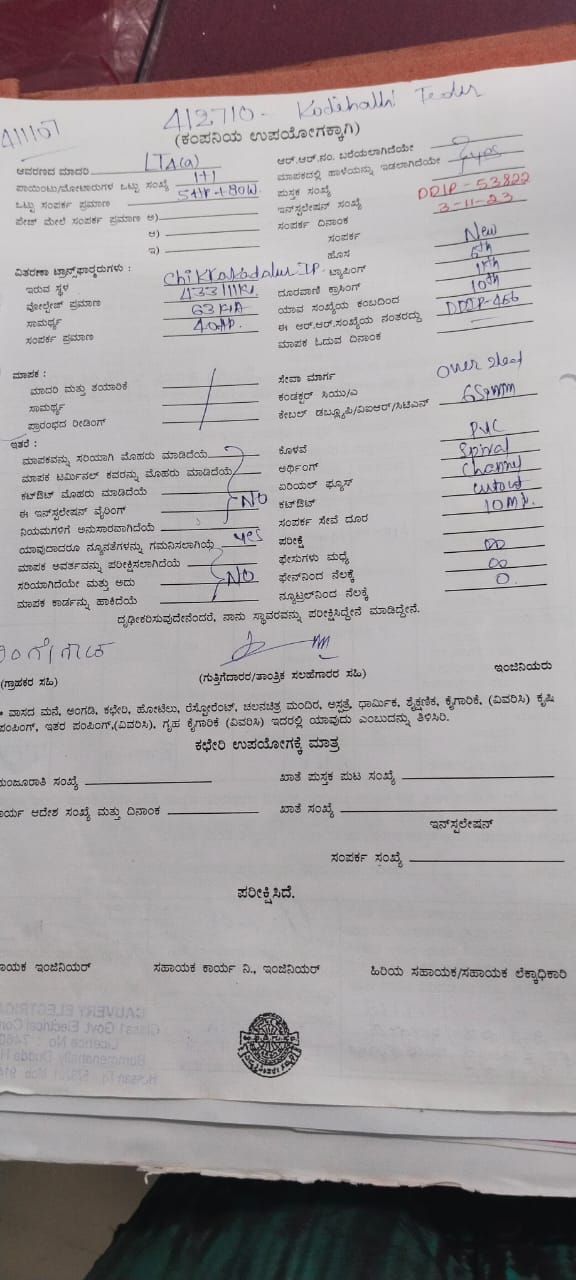 411107
412710 - Kodihalli Feeder
(ಕಂಪನಿಯ ಉಪಯೋಗಕ್ಕಾಗಿ)
ಆವರಣದ ಮಾದರಿ LT4(a)
ಪಾಯಿಂಟು/ಮೋಟಾರುಗಳ ಒಟ್ಟು ಸಂಖ್ಯೆ 1+1
ಒಟ್ಟು ಸಂಪರ್ಕ ಪ್ರಮಾಣ 5HP+80W
ಪೇಜ್ ಮೇಲೆ ಸಂಪರ್ಕ ಪ್ರಮಾಣ ಅ)
ಆ)
ಇ)
ಆರ್.ಆರ್.ನಂ. ಬರೆಯಲಾಗಿದೆಯೇ
ಮಾಪಕದಲ್ಲಿ ಹಾಳೆಯನ್ನು ಇಡಲಾಗಿದೆಯೇ yes
ಪುಸ್ತಕ ಸಂಖ್ಯೆ
ಇನ್‌ಸ್ಟಲೇಷನ್ ಸಂಖ್ಯೆ DDIP-53822
ಸಂಪರ್ಕ ದಿನಾಂಕ 3-11-23
ಸಂಪರ್ಕ
ಹೊಸ New
ವಿತರಣಾ ಟ್ರಾನ್ಸ್‌ಫಾರ್ಮರುಗಳು :
ಇರುವ ಸ್ಥಳ Chikkakadalur IP
ವೋಲ್ಟೇಜ್ ಪ್ರಮಾಣ 433/11KV
ಸಾಮರ್ಥ್ಯ 63KVA
ಸಂಪರ್ಕ ಪ್ರಮಾಣ 40HP
ಟ್ಯಾಪಿಂಗ್ 6th
ದೂರವಾಣಿ ಕ್ರಾಸಿಂಗ್
ಯಾವ ಸಂಖ್ಯೆಯ ಕಂಬದಿಂದ 10th
ಈ ಆರ್.ಆರ್.ಸಂಖ್ಯೆಯ ನಂತರದ್ದು DDIP-466
ಮಾಪಕ ಓದುವ ದಿನಾಂಕ
ಮಾಪಕ :
ಮಾದರಿ ಮತ್ತು ತಯಾರಿಕೆ
ಸಾಮರ್ಥ್ಯ
ಪ್ರಾರಂಭದ ರೀಡಿಂಗ್
ಸೇವಾ ಮಾರ್ಗ Over head
ಕಂಡಕ್ಟರ್ ಸಿಯು/ಎ
ಕೇಬಲ್ ಡಬ್ಲ್ಯೂಪಿ/ವಿಐಆರ್/ಸಿಟಿಎಸ್ 6Sqmm
ಇತರೆ :
ಮಾಪಕವನ್ನು ಸರಿಯಾಗಿ ಮೊಹರು ಮಾಡಿದೆಯೆ
ಮಾಪಕ ಟರ್ಮಿನಲ್ ಕವರನ್ನು ಮೊಹರು ಮಾಡಿದೆಯೆ
ಕಟ್‌ಔಟ್ ಮೊಹರು ಮಾಡಿದೆಯೆ
ಈ ಇನ್‌ಸ್ಟಲೇಷನ್ ವೈರಿಂಗ್ NO
ನಿಯಮಗಳಿಗೆ ಅನುಸಾರವಾಗಿದೆಯೆ
ಯಾವುದಾದರೂ ನ್ಯೂನತೆಗಳನ್ನು ಗಮನಿಸಲಾಗಿಯೆ yes
ಮಾಪಕ ಆವರ್ತವನ್ನು ಪರೀಕ್ಷಿಸಲಾಗಿದೆಯೆ
ಸರಿಯಾಗಿದೆಯೇ ಮತ್ತು ಅದು NO
ಮಾಪಕ ಕಾರ್ಡನ್ನು ಹಾಕಿದೆಯೆ
ಕೊಳವೆ PVC
ಅರ್ಥಿಂಗ್ Spiral
ಏರಿಯಲ್ ಫ್ಯೂಸ್ Channel
ಕಟ್‌ಔಟ್ cutout
ಸಂಪರ್ಕ ಸೇವೆ ದೂರ 10Mt.
ಪರೀಕ್ಷೆ
ಫೇಸುಗಳು ಮಧ್ಯೆ 00
ಫೇಸ್‌ನಿಂದ ನೆಲಕ್ಕೆ 00
ನ್ಯೂಟ್ರಲ್‌ನಿಂದ ನೆಲಕ್ಕೆ 0.
ದೃಢೀಕರಿಸುವುದೇನೆಂದರೆ, ನಾನು ಸ್ಥಾವರವನ್ನು ಪರೀಕ್ಷಿಸಿದ್ದೇನೆ ಮಾಡಿದ್ದೇನೆ.
(ಗ್ರಾಹಕರ ಸಹಿ)
(ಗುತ್ತಿಗೆದಾರರ/ತಾಂತ್ರಿಕ ಸಲಹೆಗಾರರ ಸಹಿ)
ಇಂಜಿನಿಯರು
* ವಾಸದ ಮನೆ, ಅಂಗಡಿ, ಕಛೇರಿ, ಹೋಟೆಲು, ರೆಸ್ಟೋರೆಂಟ್, ಚಲನಚಿತ್ರ ಮಂದಿರ, ಆಸ್ಪತ್ರೆ, ಧಾರ್ಮಿಕ, ಶೈಕ್ಷಣಿಕ, ಕೈಗಾರಿಕೆ, (ವಿವರಿಸಿ) ಕೃಷಿ
ಪಂಪಿಂಗ್, ಇತರ ಪಂಪಿಂಗ್,(ವಿವರಿಸಿ), ಗೃಹ ಕೈಗಾರಿಕೆ (ವಿವರಿಸಿ) ಇದರಲ್ಲಿ ಯಾವುದು ಎಂಬುದನ್ನು ತಿಳಿಸಿರಿ.
ಕಛೇರಿ ಉಪಯೋಗಕ್ಕೆ ಮಾತ್ರ
ಮಂಜೂರಾತಿ ಸಂಖ್ಯೆ
ಖಾತೆ ಪುಸ್ತಕ ಪುಟ ಸಂಖ್ಯೆ
ಕಾರ್ಯ ಆದೇಶ ಸಂಖ್ಯೆ ಮತ್ತು ದಿನಾಂಕ
ಖಾತೆ ಸಂಖ್ಯೆ
ಇನ್‌ಸ್ಟಲೇಷನ್
ಸಂಪರ್ಕ ಸಂಖ್ಯೆ
ಪರೀಕ್ಷಿಸಿದೆ.
ಾಯಕ ಇಂಜಿನಿಯರ್
ಸಹಾಯಕ ಕಾರ್ಯ ನಿ., ಇಂಜಿನಿಯರ್
ಹಿರಿಯ ಸಹಾಯಕ/ಸಹಾಯಕ ಲೆಕ್ಕಾಧಿಕಾರಿ